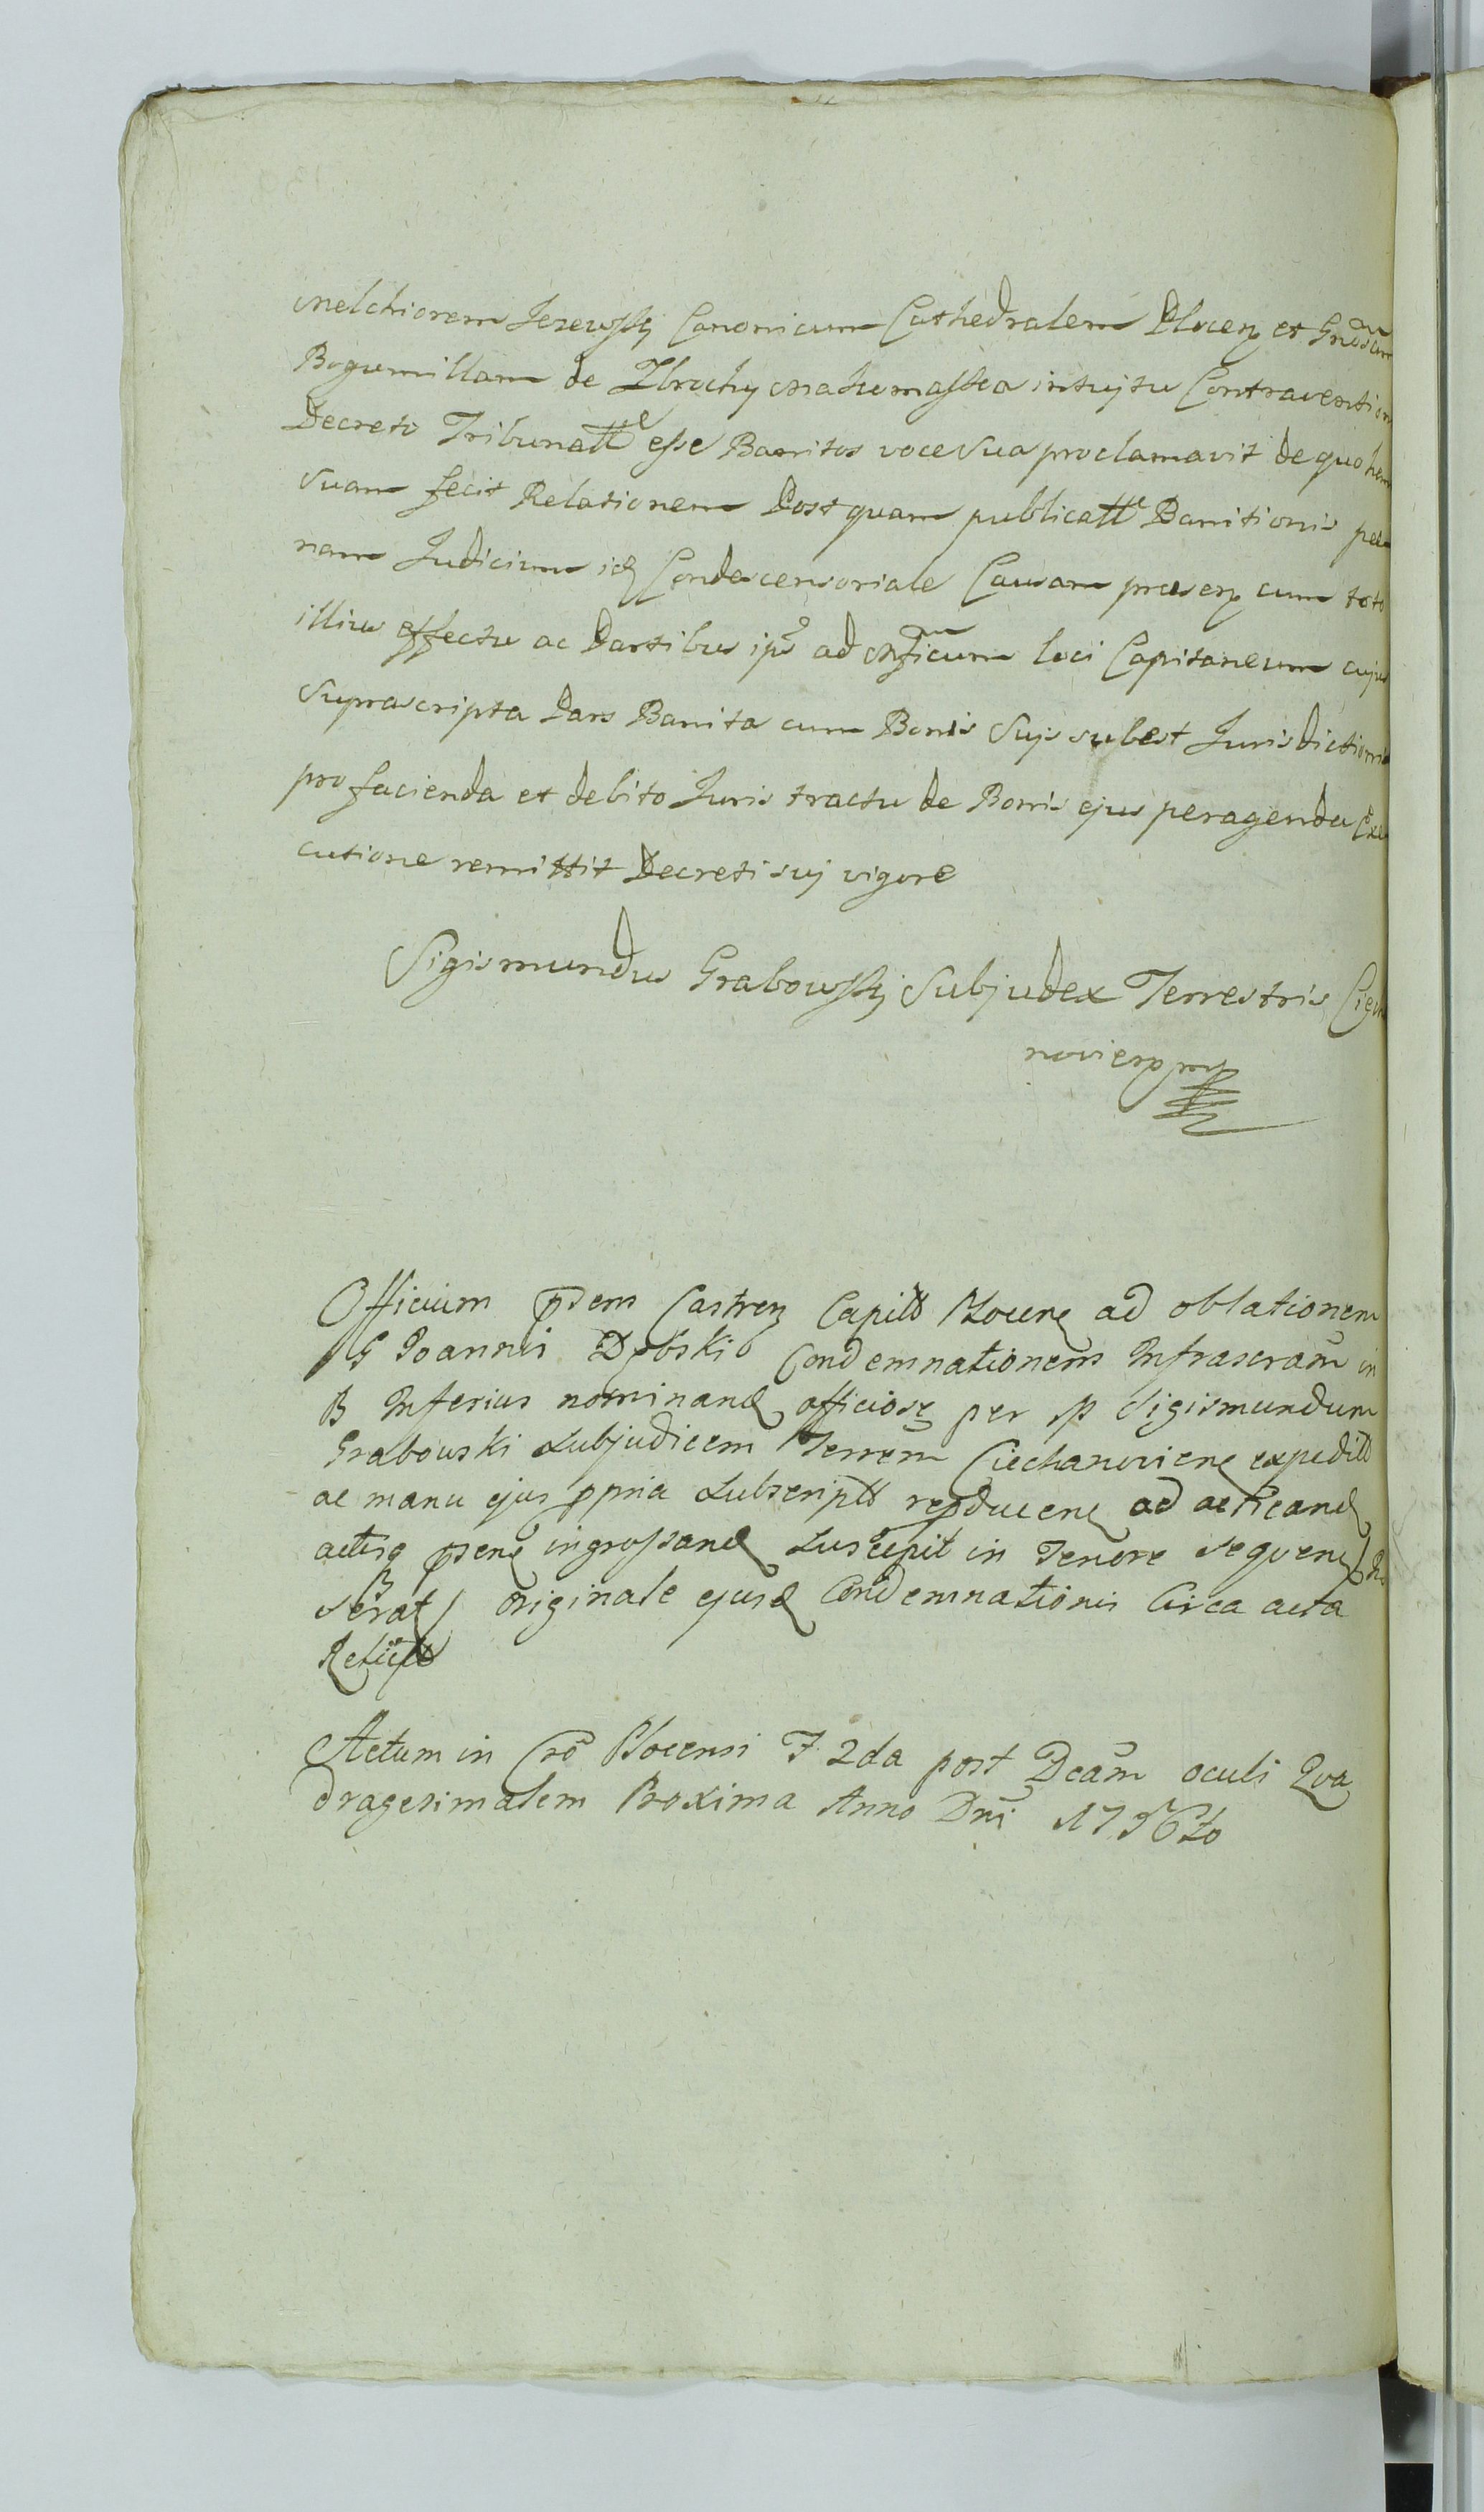 Melchiorem Jezewski Canonicum Cathedralem Plocen et Gnosam
Bogumillam de Zbrochy intuitu Contravention
Decreto Tribunalle esse Banitos voce sua proclamavit de quo hanc
suam fecit Relationem Postquam publicatte Banitionis pae
nam Judicium id Condescensoriale Causam praesen cum toto
illius effectu ac Partibus ips ad Mgficum loci Capitaneum cujus
suprascripta Pars Banita cum Bonis suis subest Jurisdictioni
pro facienda et debito Juris tractu de Bonis ejus peragenda Exe
cutione remittit Decreti suj vigore
Sigismundus Grabowski Subjudex Terrestris Ciecha
novien mp
Officium psens Castren Capitl Plocen ad oblationem
G Joannis Condemnationem Infrascram in
B Inferius nominand officiose per M Sigismundum
Grabowski Subjudicem Terrem Ciechanovien expeditt
ac manu ejus ppria Subscriptt repducen ad acticand
actisq psen ingrossand Suscepit in Tenore sequen
originale ejusd Condemnationis Circa acta

Actum in Cro Plocensi F 2da post Dcam oculi Qua
dragesimalem Proxima Anno Dni 1756to